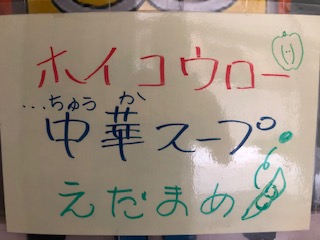 ホイコウロー
…ちゅうか
中華スープ
えだまめ